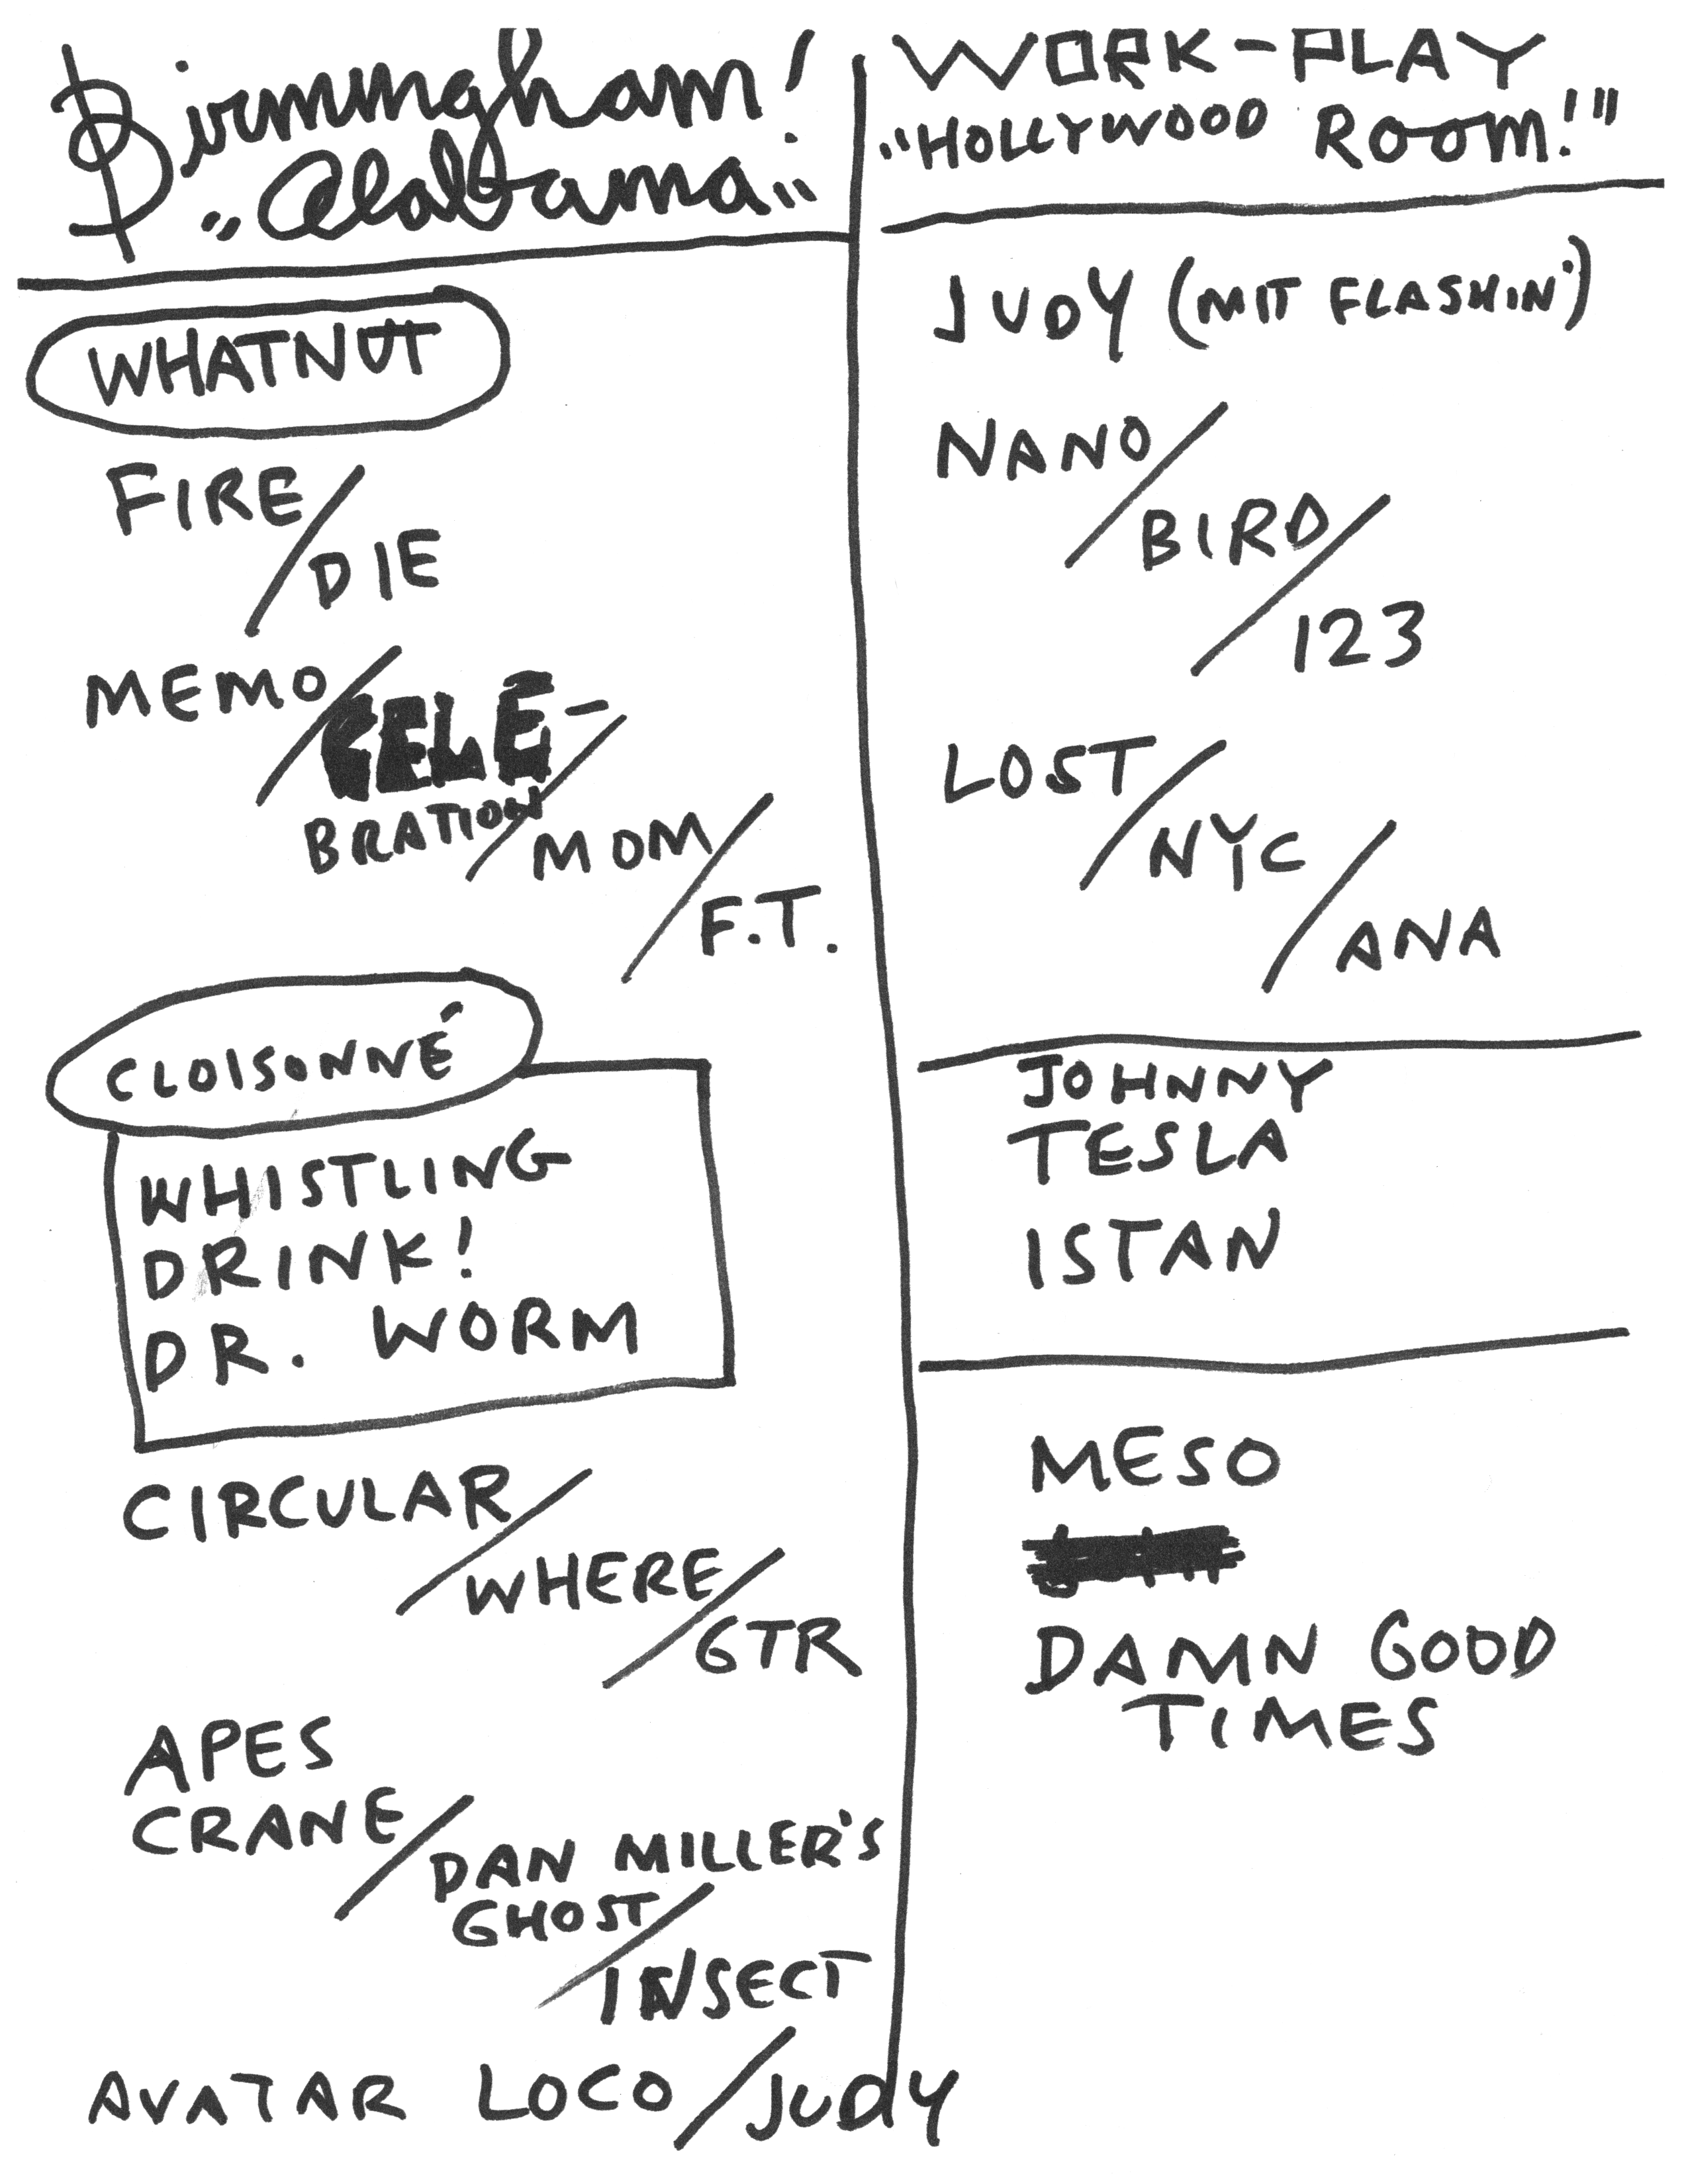 Birmingham!
"Alabama"
WHATNUT
FIRE/
DIE
MEMO/
CELE-
BRATION/
MOM/
F.T.
CLOISONNÉ
WHISTLING
DRINK!
DR. WORM
CIRCULAR/
WHERE/
GTR
APES
CRANE/
DAN MILLER'S
GHOST/
INSECT
AVATAR LOCO/JUDY
WORK-PLAY
"HOLLYWOOD ROOM!"
JUDY (MIT FLASHIN')
NANO/
BIRD/
123
LOST/
NYC/
ANA
JOHNNY
TESLA
ISTAN
MESO
DAMN GOOD
TIMES